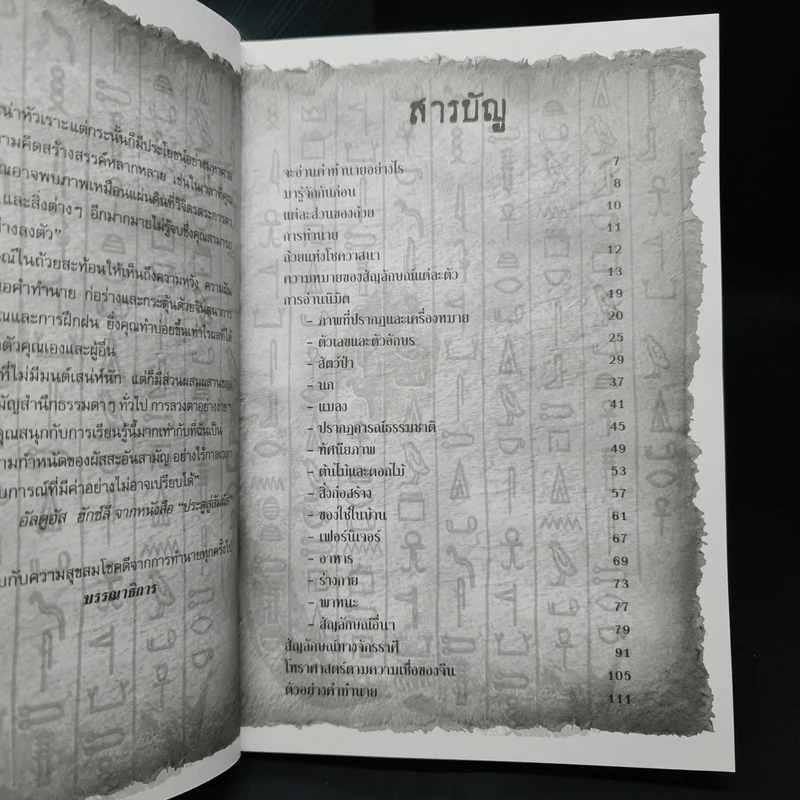 น่าหัวเราะแต่กระนั้นก็มีประโยชน์อย่างมหาศาล
ความคิดสร้างสรรค์หลากหลาย เช่นในเวลาที่คุณ
คุณอาจพบภาพเหมือนแผ่นดินที่วิจิตรตระการตา
และสิ่งต่างๆ อีกมากมายไม่รู้จบซึ่งคุณสามารถ
อย่างลงตัว"
ในถ้วยสะท้อนให้เห็นถึงความหวัง ความฝัน
คำทำนาย ก่อร่างและกระตุ้นด้วยจินตนาการ
และการฝึกฝน ยิ่งคุณทำบ่อยขึ้นเท่าไรผลที่ได้
ตัวคุณเองและผู้อื่น
ที่ไม่มีมนต์เสน่ห์นัก แต่ก็มีส่วนผสมผสานของ
สำนึกธรรมดาๆ ทั่วไป การลวงตาอย่างง่ายๆ
คุณสนุกกับการเรียนรู้นี้มากเท่ากับที่ฉันเป็น
กำหนัดของผัสสะอันสามัญ อย่างไร้กาลเวลา
การณ์ที่มีค่าอย่างไม่อาจเปรียบได้"
อัลดูอัส ฮักซ์ลี จากหนังสือ "ประตูสู่สัมผัส"
กับความสุขสมโชคดีจากการทำนายทุกครั้งไป
บรรณาธิการ
สารบัญ
จะอ่านคำทำนายอย่างไร 7
มารู้จักกันก่อน 8
แต่ละส่วนของถ้วย 10
การทำนาย 11
ถ้วยแห่งโชควาสนา 12
ความหมายของสัญลักษณ์แต่ละตัว 13
การอ่านนิมิต 19
- ภาพที่ปรากฏและเครื่องหมาย 20
- ตัวเลขและตัวอักษร 25
- สัตว์ป่า 29
- นก 37
- แมลง 41
- ปรากฏการณ์ธรรมชาติ 45
- ทัศนียภาพ 49
- ต้นไม้และดอกไม้ 53
- สิ่งก่อสร้าง 57
- ของใช้ในบ้าน 61
- เฟอร์นิเจอร์ 67
- อาหาร 69
- ร่างกาย 73
- พาหนะ 77
- สัญลักษณ์อื่นๆ 79
สัญลักษณ์ทางจักรราศี 91
โหราศาสตร์ตามความเชื่อของจีน 105
ตัวอย่างคำทำนาย 111